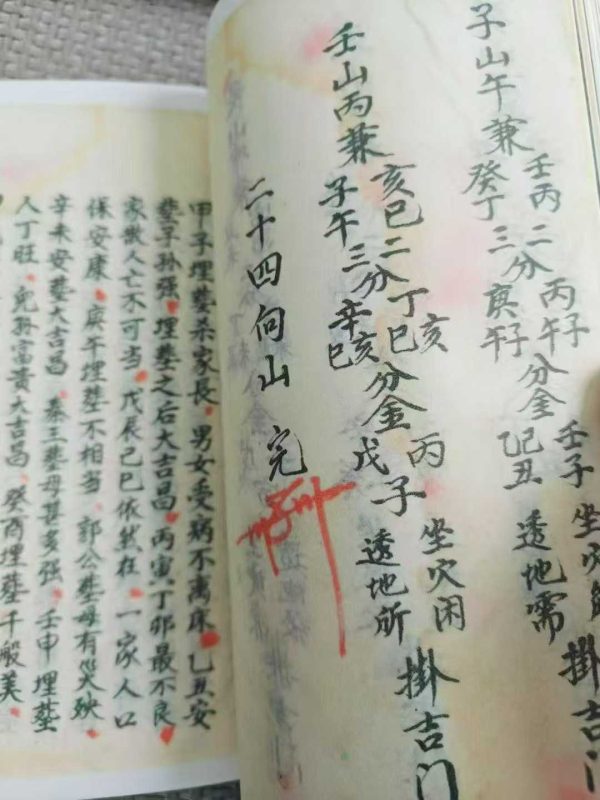 子山午兼
壬丙二分丙子午
癸丁三分庚子午
分金
壬子坐穴
己丑透地需
掛吉门
壬山丙兼
亥巳二分丁亥巳
子午三分辛亥巳
分金
丙戊子
坐穴困
透地所
掛吉门
二十四向山完
甲子埋塟杀家長男女受病不离床乙丑安
塟子孫强埋塟之后大吉昌丙寅丁卯最不良
家散人亡不可当戊辰己巳依然在一家人口
保安康庚埋塟不相当郭公塟母有災殃
辛未安塟大吉昌秦王塟母甚多强壬申埋塟
人丁旺兒孫富貴大吉昌癸酉埋塟千般美